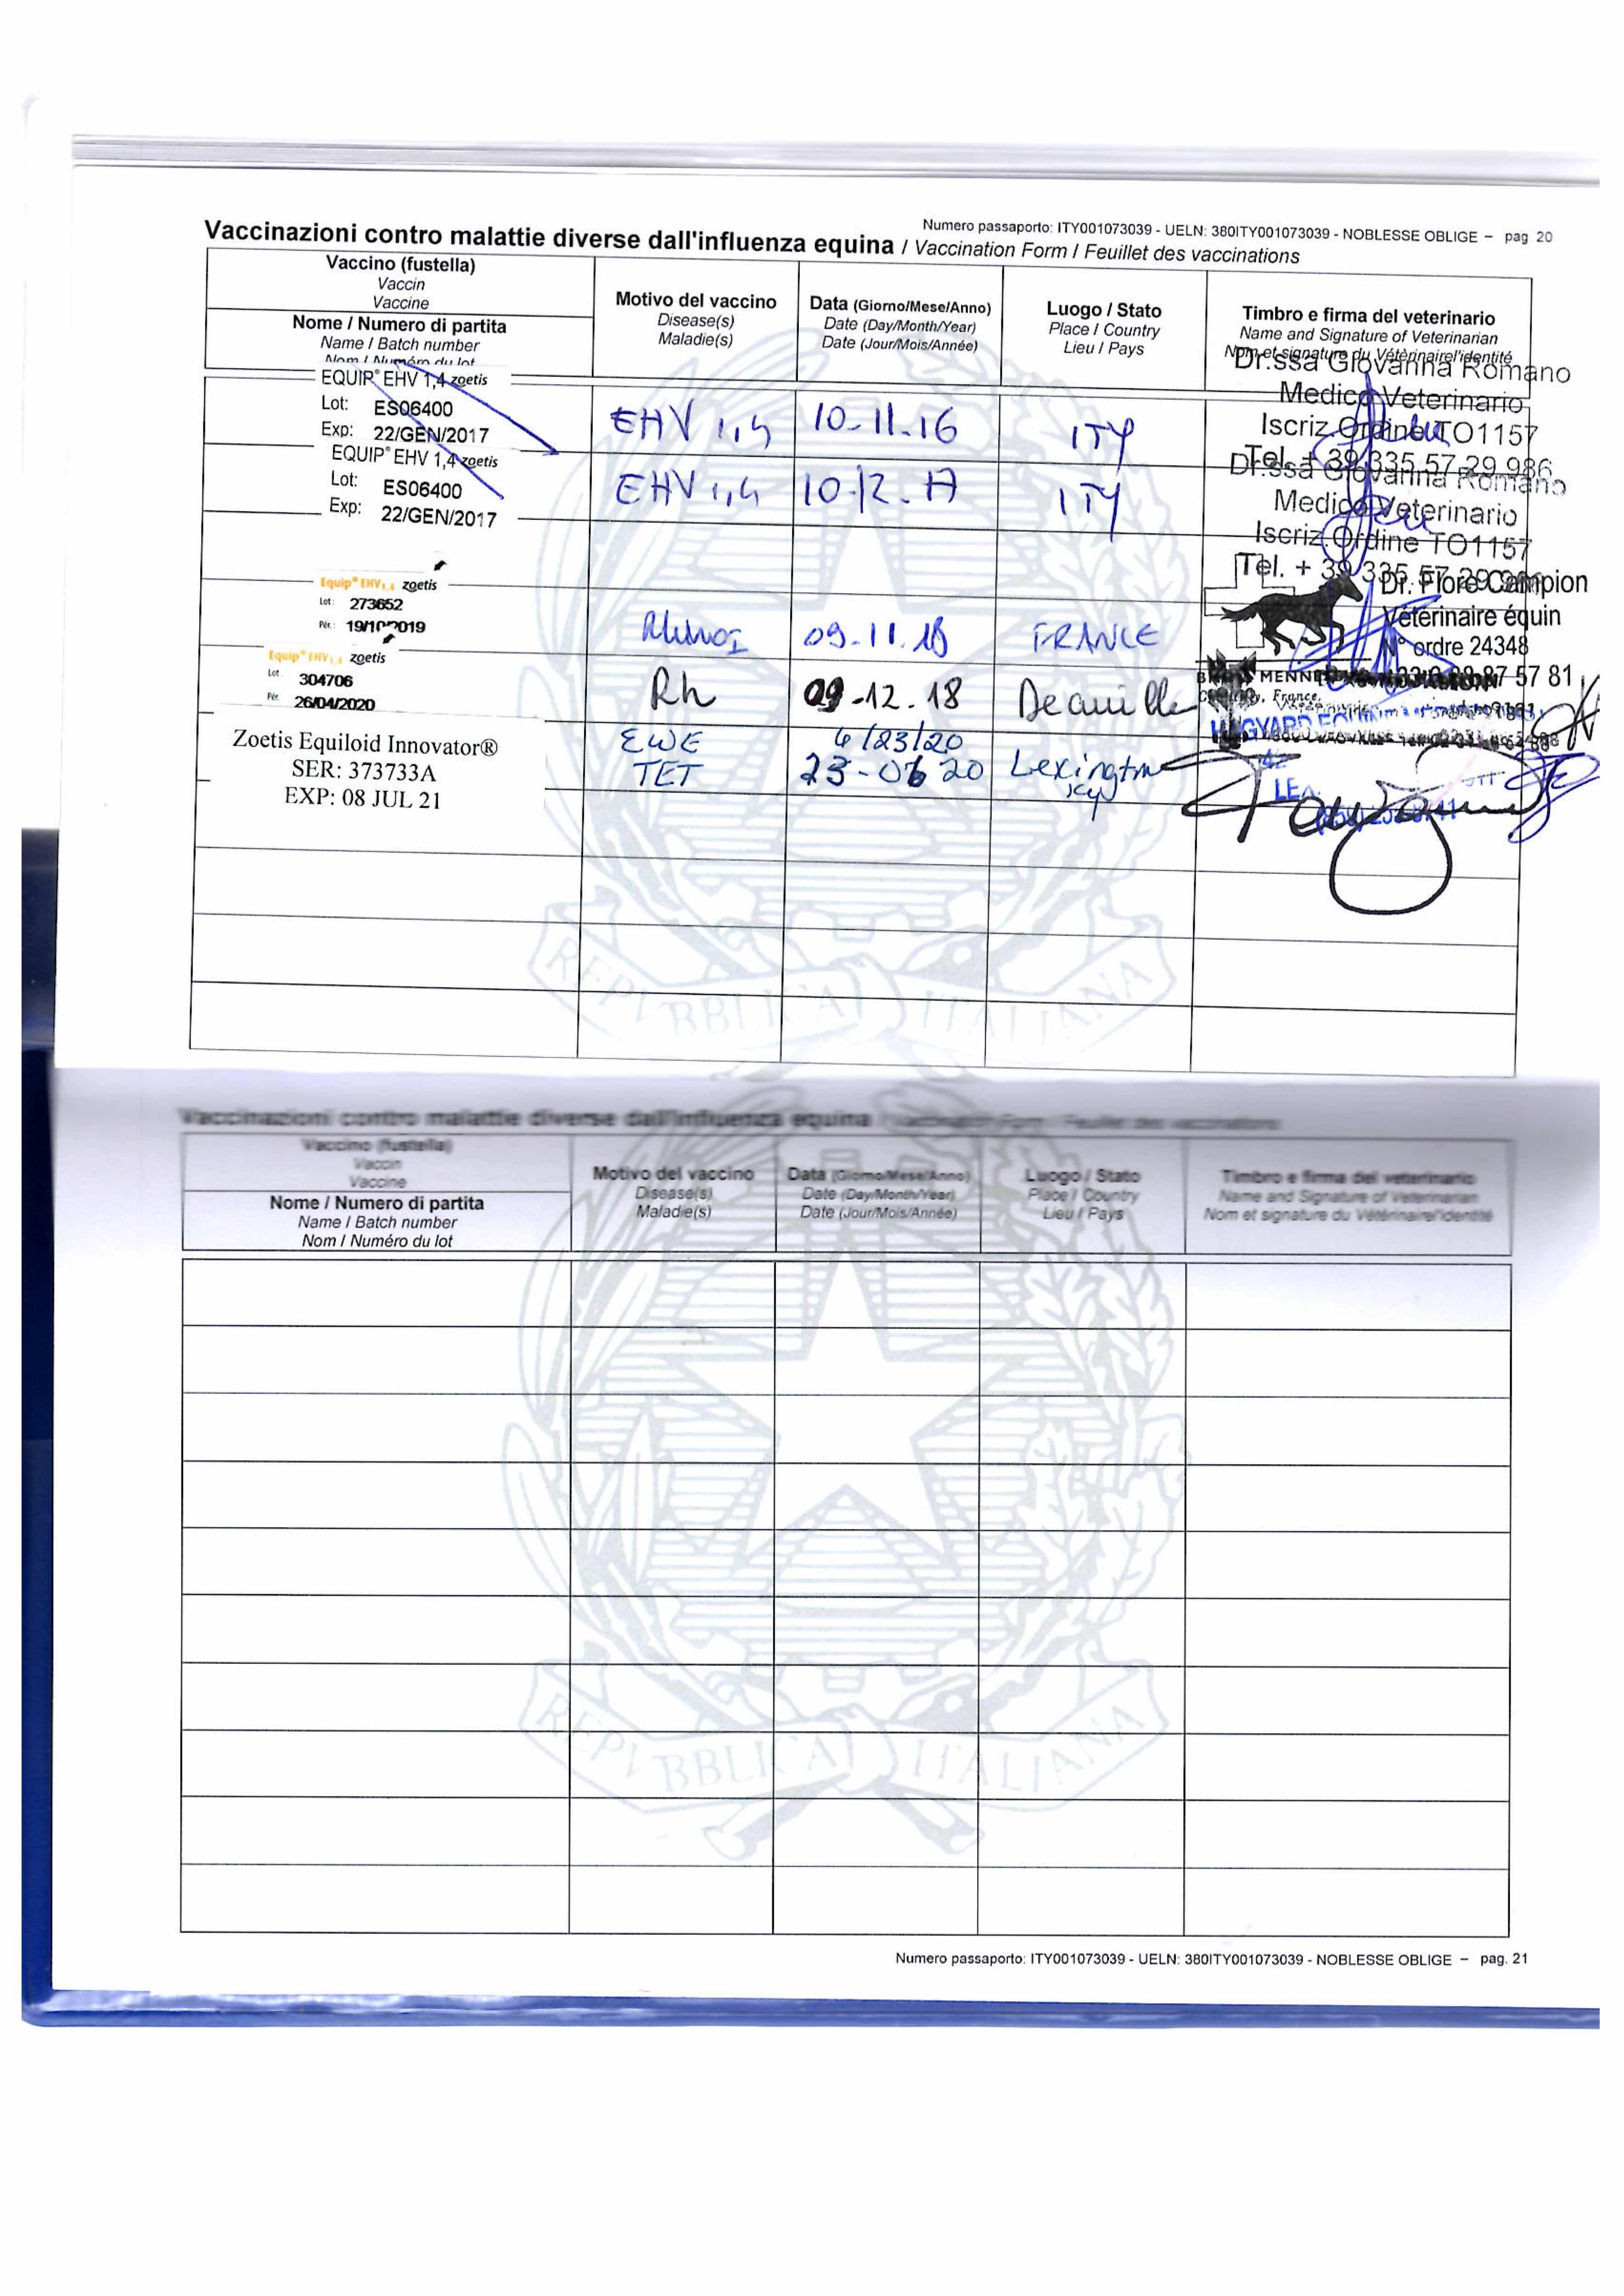 Numero passaporto: ITY001073039 - UELN: 380ITY001073039 - NOBLESSE OBLIGE – pag 20
Vaccinazioni contro malattie diverse dall'influenza equina / Vaccination Form / Feuillet des vaccinations
Vaccino (fustella)
Vaccin
Vaccine
Nome / Numero di partita
Name / Batch number
Nom / Numéro du lot
Motivo del vaccino
Disease(s)
Maladie(s)
Data (Giorno/Mese/Anno)
Date (Day/Month/Year)
Date (Jour/Mois/Année)
Luogo / Stato
Place / Country
Lieu / Pays
Timbro e firma del veterinario
Name and Signature of Veterinarian
Nom et signature du Vétérinaire/l'identité
EQUIP® EHV 1,4 zoetis
Lot: ES06400
Exp: 22/GEN/2017
EHV 1,4
10-11-16
ITY
Dr.ssa Giovanna Romano
Medico Veterinario
Iscriz.Ordine TO1157
Tel. + 39 335 57 29 986
EQUIP® EHV 1,4 zoetis
Lot: ES06400
Exp: 22/GEN/2017
EHV 1,4
ITY
Dr.ssa Giovanna Romano
Medico Veterinario
Iscriz.Ordine TO1157
Tel. + 39 335 57 29 986
Equip® EHV1,4 zoetis
Lot: 273652
Pér.: 2019
09.11.18
FRANCE
Dr. Flore Campion
Vétérinaire équin
N° ordre 24348
87 57 81
Equip® EHV1,4 zoetis
Lot 304706
Pér. 26/04/2020
Rh
09-12.18
Deauville
France
Zoetis Equiloid Innovator®
SER: 373733A
EXP: 08 JUL 21
EWE
TET
6/23/20
23-06 20
Lexington
Ky
REPVBBLICA ITALIANA
Vaccinazioni contro malattie diverse dall'influenza equina / Vaccination Form / Feuillet des vaccinations
Vaccino (fustella)
Vaccin
Vaccine
Nome / Numero di partita
Name / Batch number
Nom / Numéro du lot
Motivo del vaccino
Disease(s)
Maladie(s)
Data (Giorno/Mese/Anno)
Date (Day/Month/Year)
Date (Jour/Mois/Année)
Luogo / Stato
Place / Country
Lieu / Pays
Timbro e firma del veterinario
Name and Signature of Veterinarian
Nom et signature du Vétérinaire/l'identité
REPVBBLICA ITALIANA
Numero passaporto: ITY001073039 - UELN: 380ITY001073039 - NOBLESSE OBLIGE – pag. 21